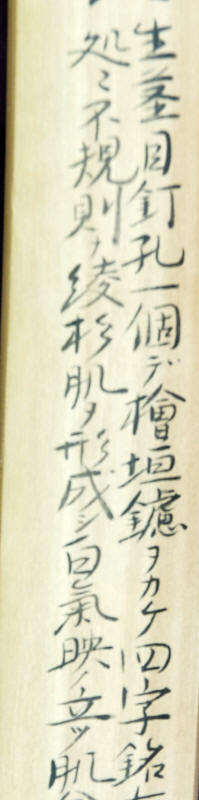 生茎目釘孔一個デ檜垣鑢ヲカケ四字銘
処々不規則ナ綾杉肌ヲ形成シ白氣映ノ立ツ肌